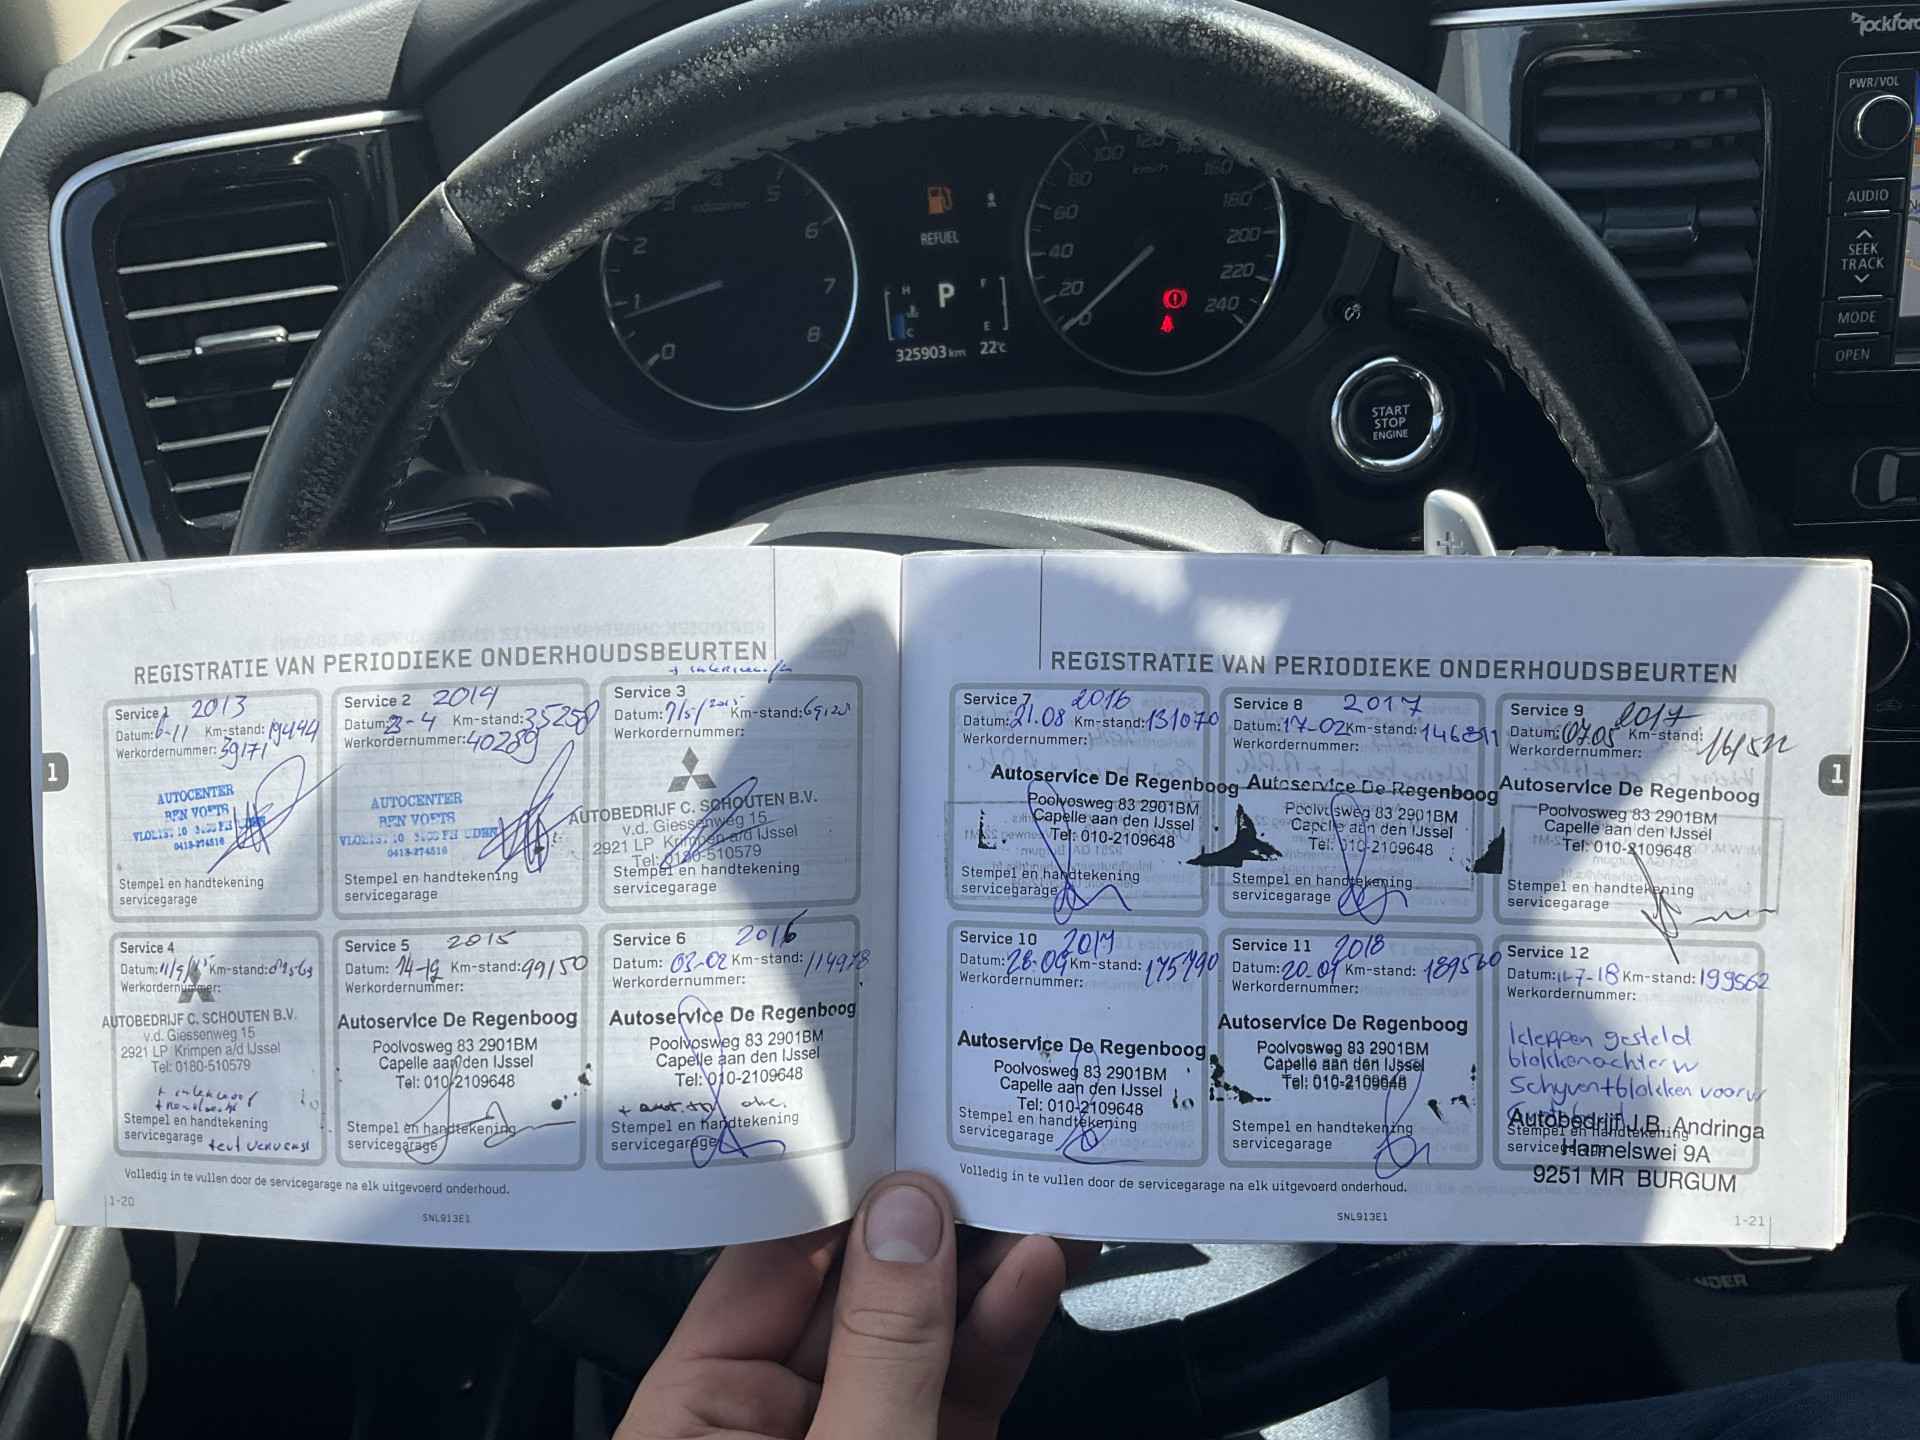 Rockford
PWR/VOL
AUDIO
SEEK
TRACK
MODE
OPEN
START
STOP
ENGINE
REFUEL
H
P
F
C
E
325903 km 22°C
0
1
2
3
4
5
6
7
8
0
20
40
60
80
100
120
140
160
180
200
220
240
km/h
REGISTRATIE VAN PERIODIEKE ONDERHOUDSBEURTEN
1
Service 1 2013
Datum: 6-11 Km-stand: 19444
Werkordernummer: 39171
AUTOCENTER
0413-274516
Stempel en handtekening
servicegarage
Service 2 2014
Datum: 23-4 Km-stand: 35258
Werkordernummer: 40289
AUTOCENTER
0413-274516
Stempel en handtekening
servicegarage
Service 3
Datum: 7/5/2015 Km-stand:
Werkordernummer:
AUTOBEDRIJF C. SCHOUTEN B.V.
v.d. Giessenweg 15
2921 LP Krimpen a/d IJssel
Tel: 0180-510579
Stempel en handtekening
servicegarage
Service 4
Datum: 11/9/15 Km-stand:
Werkordernummer:
AUTOBEDRIJF C. SCHOUTEN B.V.
v.d. Giessenweg 15
2921 LP Krimpen a/d IJssel
Tel: 0180-510579
Stempel en handtekening
servicegarage
Service 5 2015
Datum: 14-12 Km-stand: 99150
Werkordernummer:
Autoservice De Regenboog
Poolvosweg 83 2901BM
Capelle aan den IJssel
Tel: 010-2109648
Stempel en handtekening
servicegarage
Service 6 2016
Datum: 03-02 Km-stand: 114978
Werkordernummer:
Autoservice De Regenboog
Poolvosweg 83 2901BM
Capelle aan den IJssel
Tel: 010-2109648
Stempel en handtekening
servicegarage
Volledig in te vullen door de servicegarage na elk uitgevoerd onderhoud.
1-20
SNL913E1
REGISTRATIE VAN PERIODIEKE ONDERHOUDSBEURTEN
1
Service 7 2016
Datum: 21.08 Km-stand: 131070
Werkordernummer:
Autoservice De Regenboog
Poolvosweg 83 2901BM
Capelle aan den IJssel
Tel: 010-2109648
Stempel en handtekening
servicegarage
Service 8 2017
Datum: 17-02 Km-stand: 146811
Werkordernummer:
Autoservice De Regenboog
Poolvosweg 83 2901BM
Capelle aan den IJssel
Tel: 010-2109648
Stempel en handtekening
servicegarage
Service 9 2017
Datum: 07.05 Km-stand:
Werkordernummer:
Autoservice De Regenboog
Poolvosweg 83 2901BM
Capelle aan den IJssel
Tel: 010-2109648
Stempel en handtekening
servicegarage
Service 10 2017
Datum: 28.09 Km-stand: 175790
Werkordernummer:
Autoservice De Regenboog
Poolvosweg 83 2901BM
Capelle aan den IJssel
Tel: 010-2109648
Stempel en handtekening
servicegarage
Service 11 2018
Datum: 20-01 Km-stand: 189560
Werkordernummer:
Autoservice De Regenboog
Poolvosweg 83 2901BM
Capelle aan den IJssel
Tel: 010-2109648
Stempel en handtekening
servicegarage
Service 12
Datum: 11-7-18 Km-stand: 199562
Werkordernummer:
kleppen gesteld
blokken achter w
Schyven+blokken voorw
Autobedrijf J.B. Andringa
Stempel en handtekening
servicegarage
Hamelswei 9A
9251 MR BURGUM
Volledig in te vullen door de servicegarage na elk uitgevoerd onderhoud.
SNL913E1
1-21